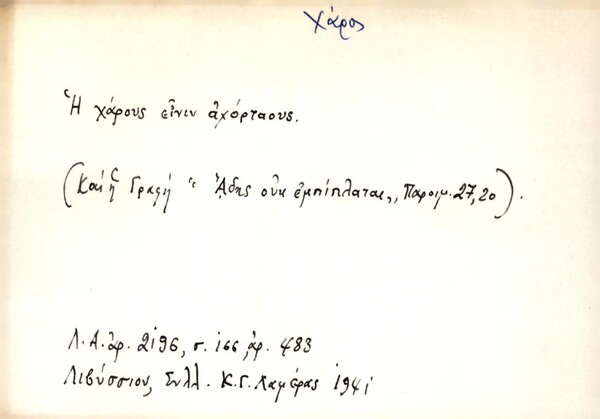 Χάρος
Ἡ χάρους εἶνιν ἀχόρταους.
(Καί ἡ Γραφή " ᾍδης οὐκ ἐμπίπλαται,, Παροιμ. 27,20).
Λ.Α. ἀρ. 2196, σ. 166, ἀρ. 483
Λιβύσσιον, Συλλ. Κ.Γ. Λαμέρας 1941